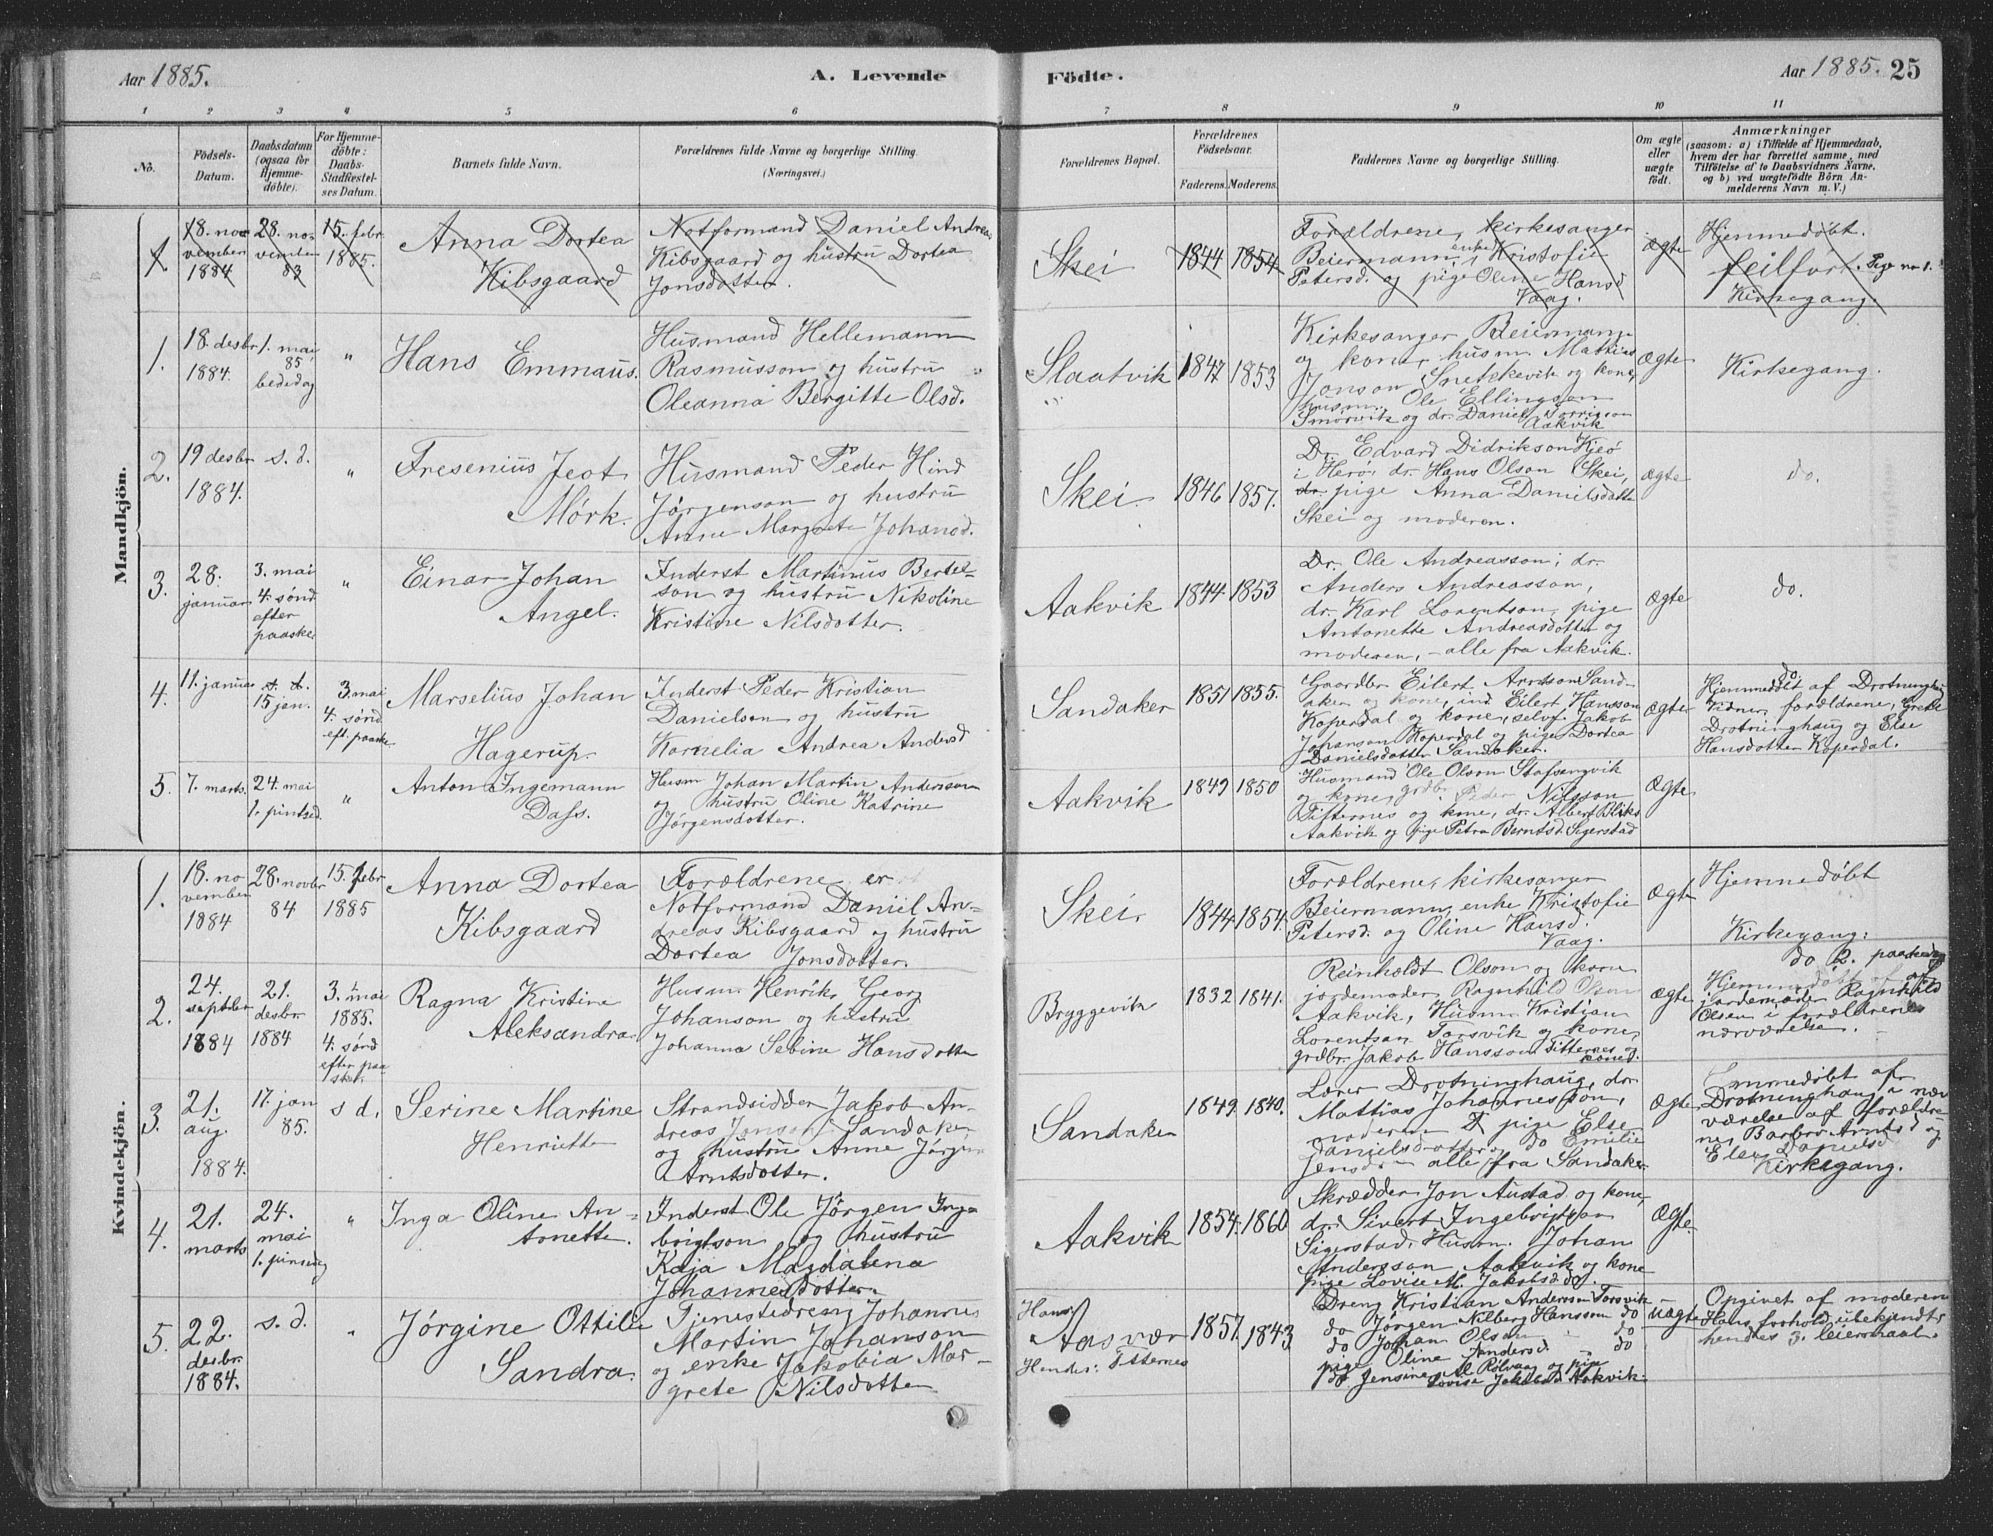 Aar 1885.
A. Levende
Födte.
Aar 1885. 25
1 2 3 4 5 6 7 8 9 10 11
No.
Födsels-
Datum.
Daabsdatum
(ogsaa for
Hjemme-
döbte).
For Hjemme-
döbte:
Daabs-
Stadfæstel-
ses Datum.
Barnets fulde Navn.
Forældrenes fulde Navne og borgerlige Stilling.
(Næringsvei.)
Forældrenes Bopæl.
Forældrenes
Födselsaar.
Faderens. Moderens.
Faddernes Navne og borgerlige Stilling.
Om ægte
eller
uægte
födt.
Anmærkninger
(saasom: a) i Tilfælde af Hjemmedaab,
hvem der har forrettet samme, med
Tilföielse af to Daabsvidners Navne,
og b) ved uægtefödte Börn An-
melderens Navn m. V.)
Mandkjön.
1.
18. no-
vember
1884
28. no-
vember
83
15. febr.
1885.
Anna Dortea
Kibsgaard
Notformand Daniel Andreas
Kibsgaard og hustru Dortea
Jonsdotter.
Skei
1844 1854
Forældrene, kirkesanger
Beiermann, enke Kristofie
Petersd. og pige Oline Hansd
Vaag.
ægte
Hjemmedøbt.
feilført. Pige no 1.
Kirkegang.
1.
18. desbr
1884.
1. mai
85
bededag
"
Hans Emmaus.
Husmand Hellemann
Rasmusson og hustru
Oleanna Bergitte Olsd.
Slaatvik
1847 1853
Kirkesanger Beiermann
og kone, husm Mattias
Jonson Snekkevik og kone,
husm. Ole Ellingson
Smørvik og dr. Daniel
Aakvik
ægte
Kirkegang.
2.
19 desbr
1884.
s. d.
"
Fresenius Jeot
Mørk.
Husmand Peder Hind
Jørgenson og hustru
Anne Margrete Johansd.
Skei
1846 1857.
Dr. Edvard Didrikson Kjeø
i Herø, dr. Hans Olson Skei,
pige Anna Danielsdotter
Skei og moderen.
ægte
do.
3.
28.
januar
3. mai
4. sønd
efter
paaske.
"
Einar Johan
Angel.
Inderst Martinus Bertel-
son og hustru Nikoline
Kristine Nilsdotter.
Aakvik
1844 1853
Dr. Ole Andreasson; dr.
Anders Andreasson,
dr. Karl Lorentson, pige
Antonette Andreasdotter og
moderen, - alle fra Aakvik.
ægte
do.
4.
11. januar
s. d.
15 jan.
3. mai
4. sønd
eft. paaske
Marselius Johan
Hagerup.
Inderst Peder Kristian
Danielson og hustru
Kornelia Andrea Andersd
Sandaker
1851 1855.
Gaardbr Eilert Arntson Sand-
aker og kone, ind Eilert Hansson
Koperdal og kone, selve. Jakob
Johanson Koperdal og pige Dortea
Danielsdotter Sandaker.
ægte
do.
Hjemmedøbt af Drotninghaug
Vidner, forældrene, Grete
Drotninghaug og Else
Hansdotter Koperdal.
5.
7. marts.
24. mai
1. pintsed.
"
Anton Ingemann
Dass.
Husm Johan Martin Anderson
og hustru Oline Katrine
Jørgensdotter.
Aakvik
1849 1850
Husmand Ole Olson Stafsengvik
og kone, grdbr Peder Nilsson
Titternes og kone, dr. Albert Bliks
Aakvik og pige Petra Berntsd. Sigerstad
Ægte
Kvindekjön.
1.
18. no
vember
1884
28. novbr
84
15 febr
1885
Anna Dortea
Kibsgaard
Forældrene er
Notformand Daniel An-
dreas Kibsgaard og hustru
Dortea Jonsdotter.
Skei
1844 1854.
Forældrene, kirkesanger
Beiermann, enke Kristofie
Petersd. og Oline Hansd.
Vaag.
ægte
Hjemmedøbt
Kirkegang:
2.
24.
septbr
1884
21.
desbr.
1884
3. mai
1885.
4. sønd
efter paa
ske.
Ragna Kristine
Aleksandra.
Husm Henrik Georg
Johanson og hustru
Johanna Sebine Hansdotter
Bryggevik
1832 1841.
Reinholdt Olson og kone
jordemoder Ragnhild Olson
Aakvik, Husm Kristian
Lorentsan Forsvik og kone,
grdbr. Jakob Hansson Titternes og
kone.
ægte
do 2. paaskedag
Hjemmedøbt af
jordemoder Ragnhild
Olsen i forældrenes
nærværelse.
3.
21.
aug.
1884.
17. jan
85.
s d.
Serine Martine
Henriette
Strandsidder Jakob An-
dreas Jonson Sandaker
og hustru Anne Jørgine
Arntsdotter.
Sandaker
1849 1840.
Lærer Drotninghaug, dr.
Mattias Johannesson,
moderen pige Else
Danielsdotter og do Emilie
Jensd. - alle fra Sandaker
ægte
Hjemmedøbt af
Drotninghaug i nær
værelse af forældre-
ne, Barbro Arntsd og
Else Danielsd
Kirkegang.
4.
21.
marts
24.
mai
1. pinsedag
"
Inga Oline An-
tonette.
Inderst Ole Jørgen Inge
brigtson og hustru
Kaja Magdalena
Johannesdotter.
Aakvik
1854. 1860
Skrædder Jon Austad og kone,
dr. Sivert Ingebrigtson
Sigerstad, Husm. Johan
Anderson Aakvik og kone
pige Lovise M. Jakobsd. do.
Ægte
5.
22.
desbr.
1884.
s. d.
"
Jørgine Ottilie
Sandra.
Tjenestedreng Johannes
Martin Johanson
og enke Jakobia Mar-
grete Nilsdotter
Hans:
Aasvær
Hendes: Titternes
1857 1843
Dreng Kristian Anderson Forsvik
do Jørgen Nilberg Hansson do
do Johan Olson do
pige Oline Andersd. do
do Jensine M Rølvaag og pige
Lovise Jakobsd Aakvik.
uægte
Opgivet af moderen
Hans forhold ubekjendt;
hendes 3. leiermaal.